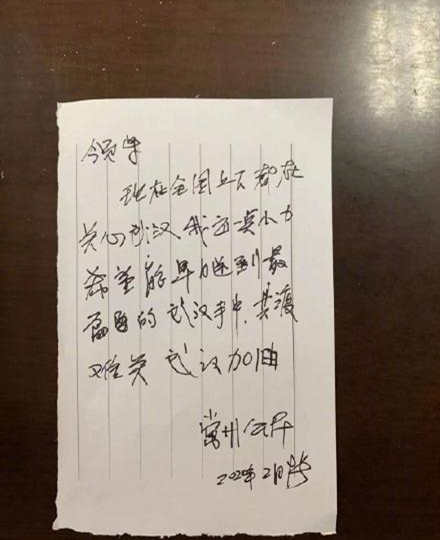 领导
现在全国上下都在
关心武汉 我们
希望能早日送到最
需要的武汉手中,共渡
难关 武汉加油
常州
2020年2月